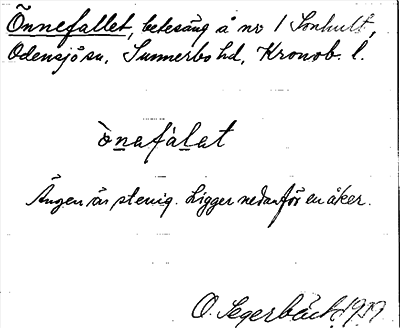 Önnefallet, betesäng å nr 1 Sonhult,
Odensjö sn, Sunnerbo hd, Kronob. l.
ònafàlat
Ängen är stenig. Ligger nedanför en åker.
O. Segerbäck 1927